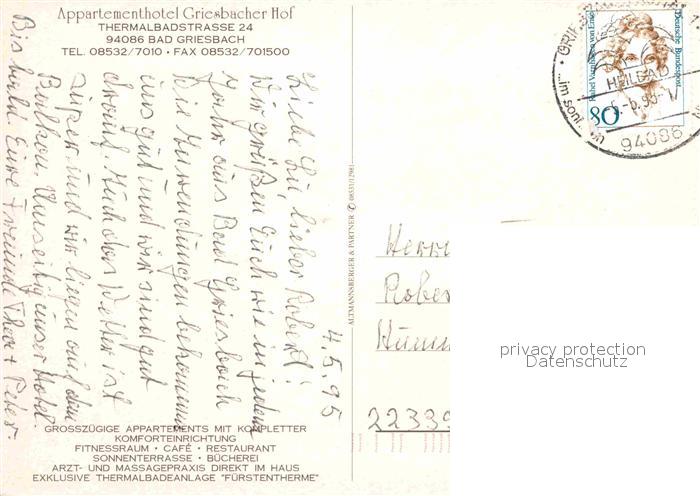 Appartementhotel Griesbacher Hof
THERMALBADSTRASSE 24
94086 BAD GRIESBACH
TEL. 08532/7010 • FAX 08532/701500
4.5.95
Liebe Lu, lieber Robert!
Wir grüßen Euch wie in jedem
Jahr aus Bad Griesbach
Die Anwendungen bekommen
uns gut und wir sind gut
drauf. Auch das Wetter ist
super und wir liegen auf dem
Balkon. Umseitig unser Hotel.
Bis bald Eure Freunde Theo + Peter.
GROSSZÜGIGE APPARTEMENTS MIT KOMPLETTER
KOMFORTEINRICHTUNG
FITNESSRAUM • CAFÉ • RESTAURANT
SONNENTERRASSE • BÜCHEREI
ARZT- UND MASSAGEPRAXIS DIREKT IM HAUS
EXKLUSIVE THERMALBADEANLAGE "FÜRSTENTHERME"
ALTMANNSBERGER & PARTNER ✆ 08531/12981
Deutsche Bundespost
Rahel Varnhagen von Ense
80
HEILBAD
94086
Herrn
Rober
Humm
22339
privacy protection
Datenschutz